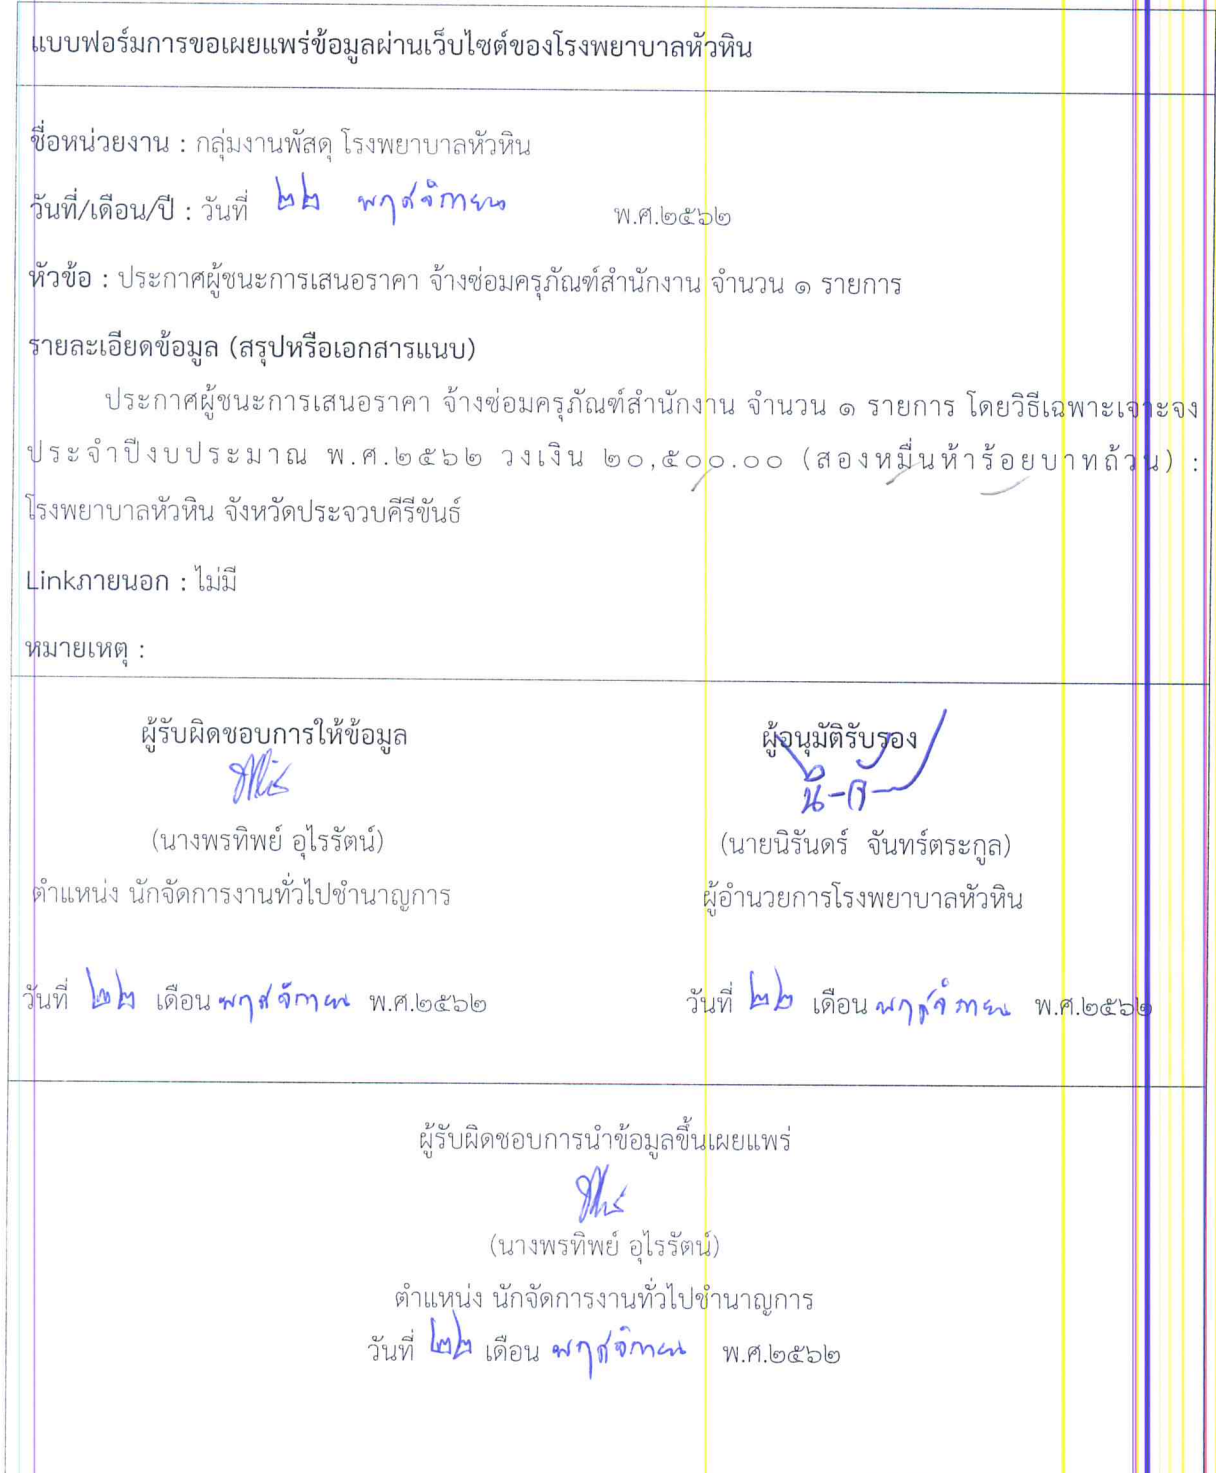 แบบฟอร์มการขอเผยแพร่ข้อมูลผ่านเว็บไซต์ของโรงพยาบาลหัวหิน
ชื่อหน่วยงาน : กลุ่มงานพัสดุ โรงพยาบาลหัวหิน
วันที่/เดือน/ปี : วันที่ ๒๒ พฤศจิกายน พ.ศ.๒๕๖๒
หัวข้อ : ประกาศผู้ชนะการเสนอราคา จ้างซ่อมครุภัณฑ์สำนักงาน จำนวน ๑ รายการ
รายละเอียดข้อมูล (สรุปหรือเอกสารแนบ)
ประกาศผู้ชนะการเสนอราคา จ้างซ่อมครุภัณฑ์สำนักงาน จำนวน ๑ รายการ โดยวิธีเฉพาะเจาะจง
ประจำปีงบประมาณ พ.ศ.๒๕๖๒ วงเงิน ๒๐,๕๐๐.๐๐ (สองหมื่นห้าร้อยบาทถ้วน) :
โรงพยาบาลหัวหิน จังหวัดประจวบคีรีขันธ์
Linkภายนอก : ไม่มี
หมายเหตุ :
ผู้รับผิดชอบการให้ข้อมูล ผู้อนุมัติรับรอง
(นางพรทิพย์ อุไรรัตน์) (นายนิรันดร์ จันทร์ตระกูล)
ตำแหน่ง นักจัดการงานทั่วไปชำนาญการ ผู้อำนวยการโรงพยาบาลหัวหิน
วันที่ ๒๒ เดือน พฤศจิกายน พ.ศ.๒๕๖๒ วันที่ ๒๒ เดือน พฤศจิกายน พ.ศ.๒๕๖๒
ผู้รับผิดชอบการนำข้อมูลขึ้นเผยแพร่
(นางพรทิพย์ อุไรรัตน์)
ตำแหน่ง นักจัดการงานทั่วไปชำนาญการ
วันที่ ๒๒ เดือน พฤศจิกายน พ.ศ.๒๕๖๒